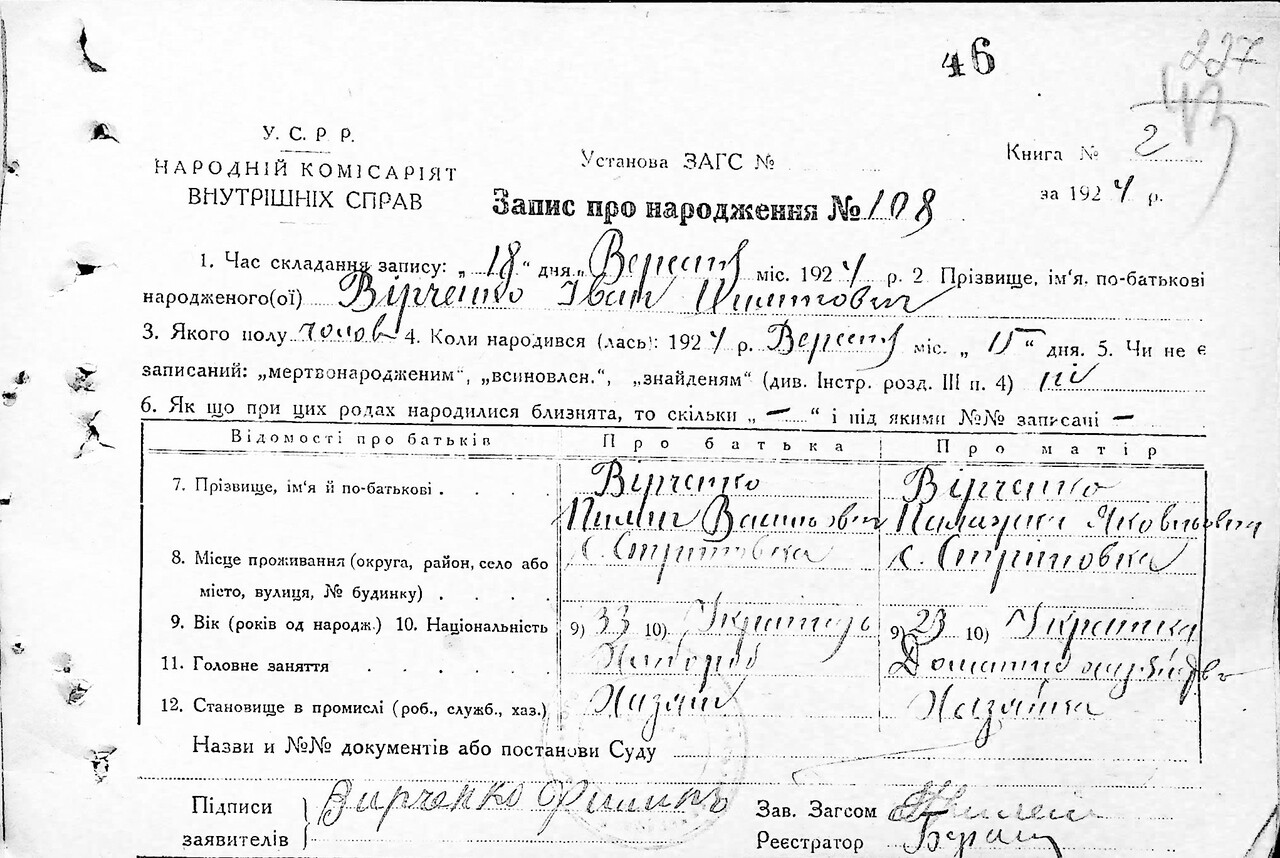 46
227
43
У. С. Р. Р.
НАРОДНІЙ КОМІСАРІЯТ
ВНУТРІШНІХ СПРАВ
Установа ЗАГС №
Книга № 2
за 1924 р.
Запис про народження № 108
1. Час складання запису: „ 18 " дня „ Вересня міс. 1924 р. 2 Прізвище, ім'я, по-батькові
народженого(ої) Вірченко Іван Пилипович
3. Якого полу чолов 4. Коли народився (лась): 1924 р. Вересня міс. „ 15 " дня. 5. Чи не є
записаний: „мертвонародженим", „всиновлєн.", „знайденям" (див. Інстр. розд. III п. 4) ні
6. Як що при цих родах народилися близнята, то скільки „ — " і під якими №№ записані —
Відомості про батьків Про батька Про матір
7. Прізвище, ім'я й по-батькові . . . . Вірченко Вірченко
Пилип Васильович Палажка Яковльовна
8. Місце проживання (округа, район, село або с. Стрітовка с. Стрітовка
місто, вулиця, № будинку) . . . .
9. Вік (років од народж.) 10. Національність 9) 33 10) Українець 9) 23 10) Українка
11. Головне заняття . . . . Хлібороб Домашнє
12. Становище в промислі (роб., служб., хаз.) Хазяїн Хазяйка
Назви и №№ документів або постанови Суду
Підписи
заявителів
Вирченко Филипъ
Зав. Загсом
Реєстратор